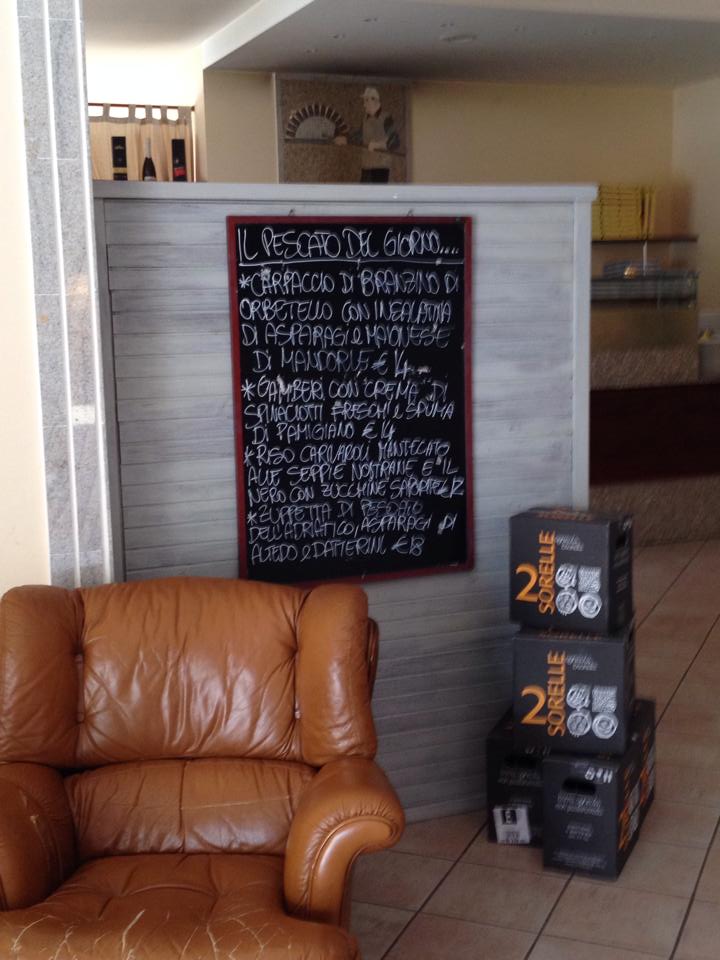 IL PESCATO DEL GIORNO....
*CARPACCIO DI BRANZINO DI
ORBETELLO CON INSALATINA
DI ASPARAGI e MAIONESE
DI MANDORLE € 14
*GAMBERI CON CREMA DI
SPINACIOTTI FRESCHI e SPUMA
DI PAMIGIANO € 14
*RISO CARNAROLI MANTECATO
ALLE SEPPIE NOSTRANE E IL
NERO CON ZUCCHINE SAPORITE €
*ZUPPETTA DI PESCATO
DELL'ADRIATICO, ASPARAGI DI
ALTEDO e DATTERINI €18
2 SORELLE
2 SORELLE